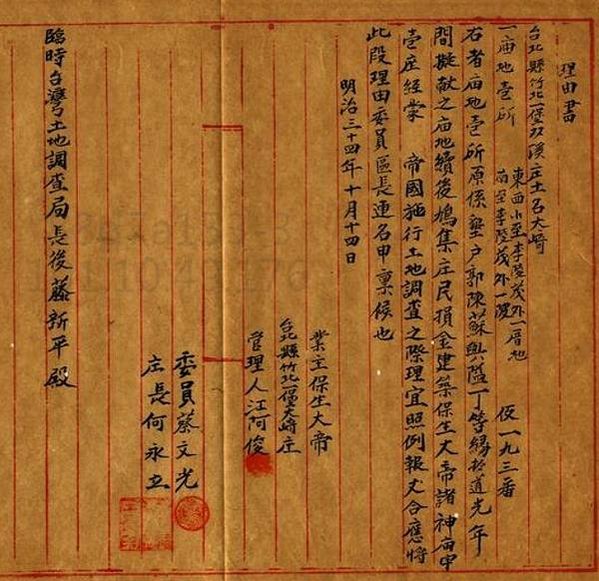 理由書
台北縣竹北一堡双溪庄土名大崎
一庙地壱所
東西北至李陵茂外一厝地
南至李陵茂外一
仮一九三番
右者庙地壱所原係墾户郭陳蘇與隘丁等緣於道光年
間擬献之庙地續後鳩集庄民損金建築保生大帝諸神庙宇
壱座経蒙 帝國施行土地調査之際理宜照例報丈合應將
此段理由委員區長連名申稟候也
明治三十四年十月十四日
業主保生大帝
台北縣竹北一堡大崎庄
管理人江阿俊
委員蔡文光
庄長何永五
臨時台灣土地調查局長後藤新平殿